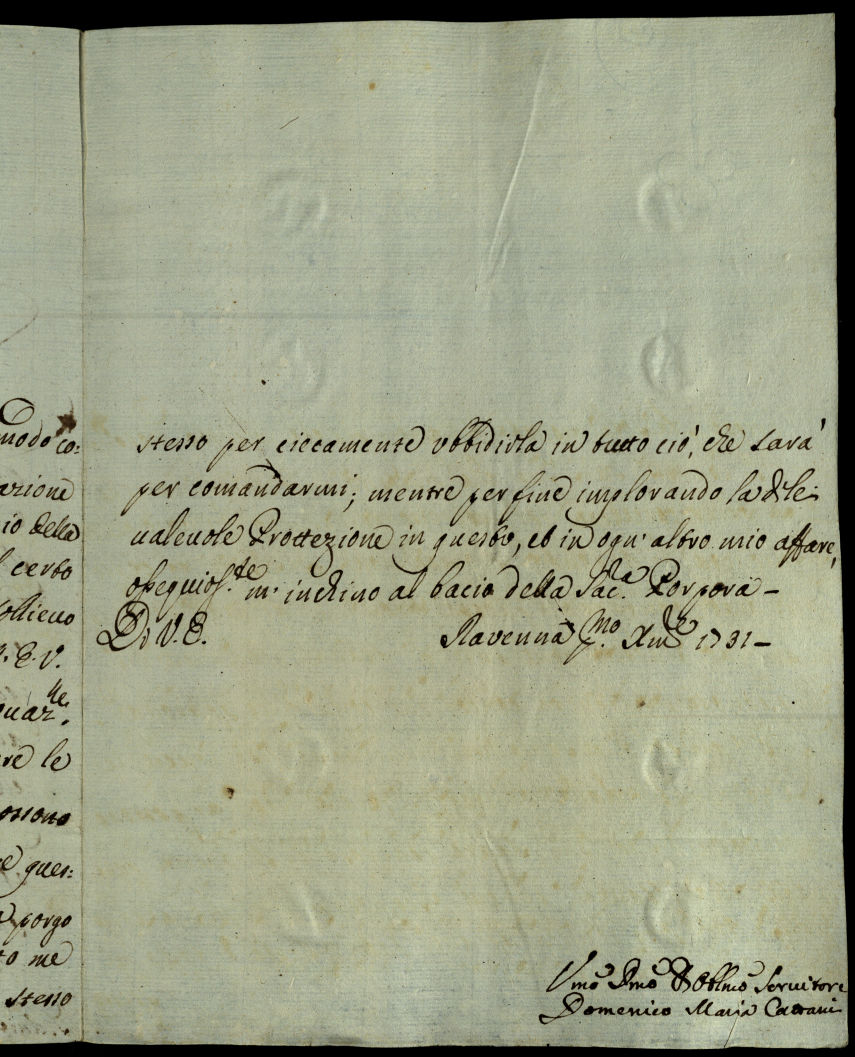 modo co:
azione
io della
l certo
ollievo
. E. V.
ouaz.ne
re le
ossono
e ques:
porgo
to me
stesso
stesso per ciecamente vbbidirla in tutto ciò, che sarà
per comandarmi; mentre per fine implorando la di lei
ualeuole Prottezione in questo, et in ogn' altro mio affare,
ossequios.te m' inchino al bacio della Sac.a Porpora -
Di V. E. Ravenna P.mo Xm̃e 1731 -
Vmo Dmo & Obllmo Seruitore
Domenico Maria